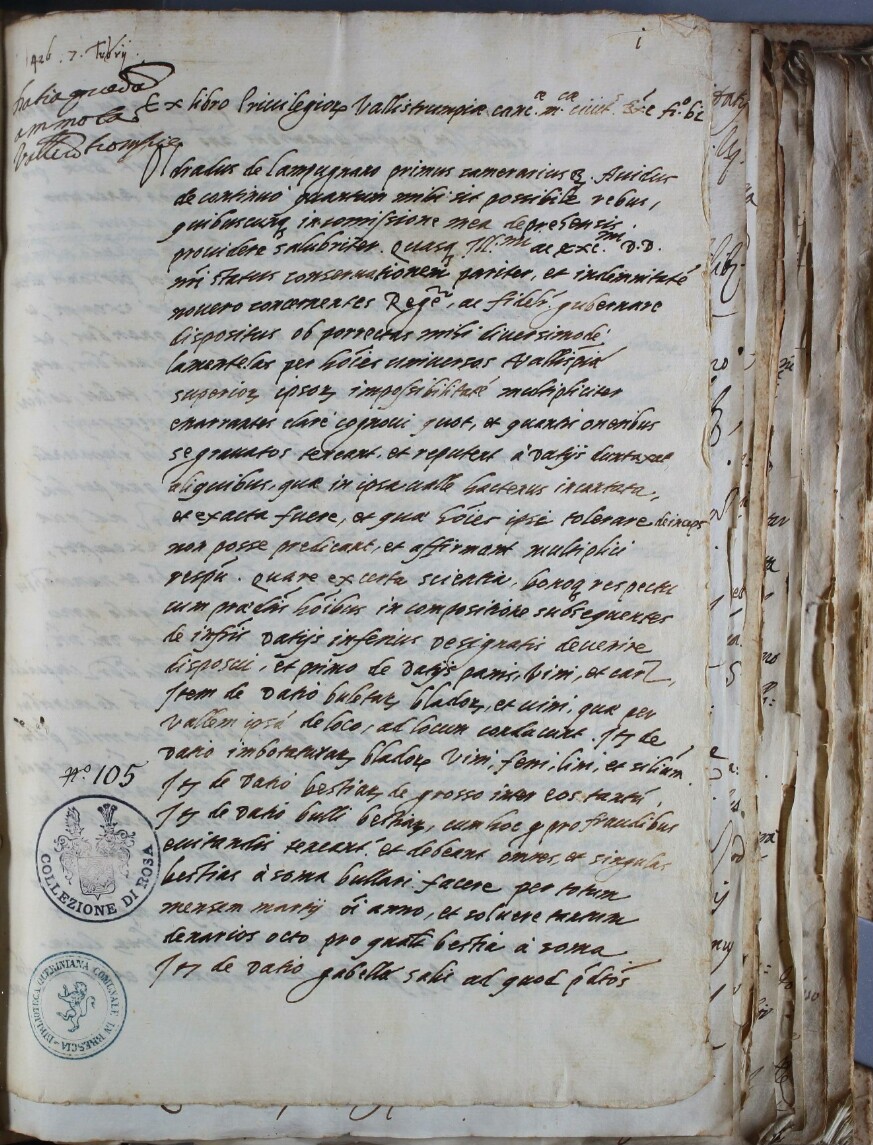 1426. 7. Febrij.
i
Datia quædã
ammocas
Vallis trompiæ
Ex libro Privilegiorꝫ Vallistrumpiæ canc.æ m.cæ fi.o
Vdradus de Lampugnano primus camerarius Avidus
de continuo quantum mihi sit possibile rebus,
quibuscũqꝫ in comissione mea deprehensis
providere salubriter. Quasqꝫ Ill.mi ac exc.mi D.D.
nri status conservationem pariter, et indemnitatẽ
novero concernentes Regẽ, ac fidelẽ gubernare
dispositus ob porrectas mihi diversimodè
lamentelas per hoĩes universos Vallispiæ
superiorꝫ ipsorꝫ impossibilitatẽ multipliciter
enarrantes clarè cognovi quot, et quantis oneribus
se gravatos teneant, et reputent à Datijs duntaxat
aliquibus, quæ in ipsa valle hactenus incantata,
et exacta fuere, et quæ hoĩes ipsi tolerare deinceps
non posse predicant, et affirmant multiplici
respũ. Quare ex certa scientia, bonoqꝫ respectu
cum prædis hoĩbus in compositione subsequentes
de infris Datijs inferius designatis devenire
disposui, et primo de Datijs panis, vini, et carꝫ,
Item de Datio bulletarꝫ bladorꝫ, et vini, quæ per
Vallem ipsã de loco, ad locum conducunt. Itꝫ de
Datio imbotaturarꝫ bladorꝫ vini, feni, lini, et siliũm
Itꝫ de Datio bestiarꝫ de grosso inter eos tantũ,
Itꝫ de Datio bulli bestiarꝫ, cum hoc qꝫ pro fraudibus
evitandis teneant et debeant omnes, et singulas
bestias à soma bullari facere per totum
mensem martij oĩ anno, et solvere tantum
denarios octo pro qualꝫ bestia à soma
Itꝫ de Datio gabellæ salis ad quod p̃dtos
N.o 105
COLLEZIONE DI ROSA
BIBLIOTECA QUERINIANA COMUNALE IN BRESCIA